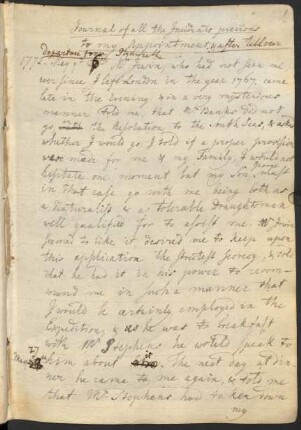 Journal of all the Incidents previous
to my Appointment, & after till our
Departure from
17. May Mr Irwin, who had not seen me
ever since I left London in the year 1767, came
late in the Evening & in a very mysterious
manner told me, that Mr Banks did not
go the Resolution to the South Seas, & asked
whether I would go. I told if a proper provision
was made for me & my Family, I would not
hesitate one moment but my Son, must
in that case go with me being both as
a Naturalist & a tolerable Draughtsman
well qualified for to assist me. Mr Irwin
seemed to like it desired me to keep upon
this application the strictest secrecy, & told
that he had it in his power to recom-
mend me in such a manner that
I would be certainly employed in the
Expedition, & as he was to breakfast
with Mr Stephens he would speak to
him about it. The next day at din-
ner he came to me again, & told me
that Mr Stephens had taken down
my